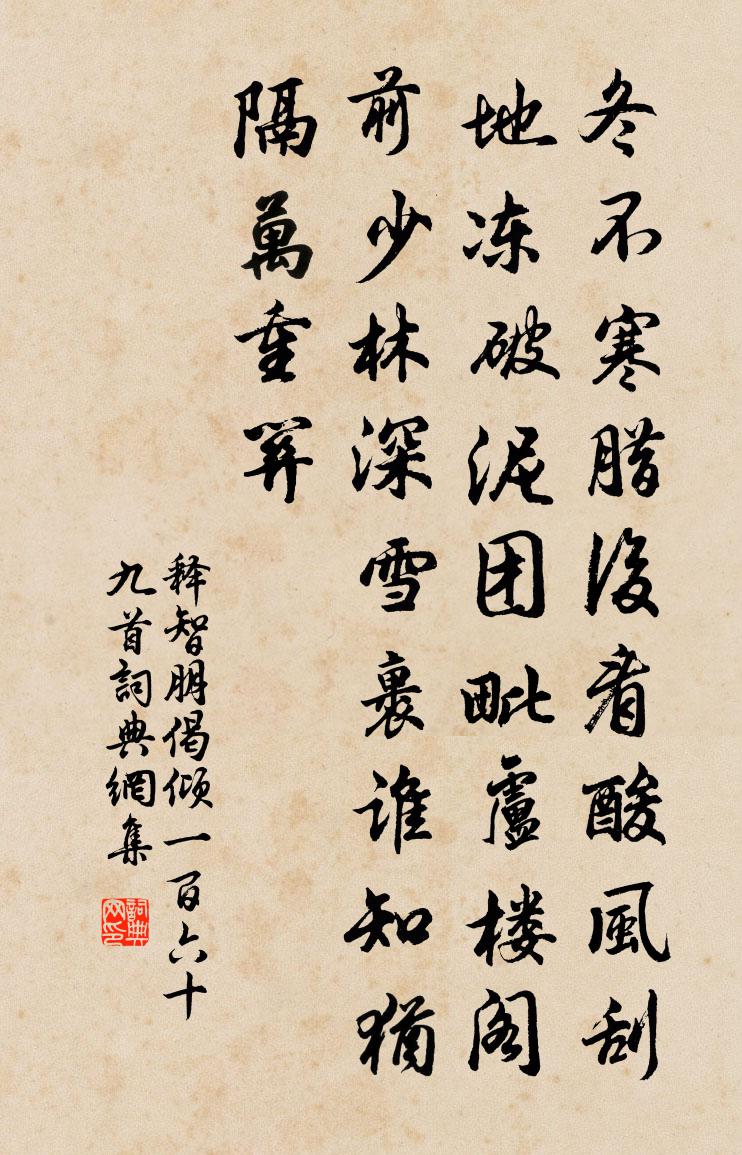 冬不寒腊後看酸風刮
地冻破泥团毗盧楼阁
前少林深雪裹谁知犹
隔萬重關
释智朋偈倾一百六十
九首詞典網集
詞典网印